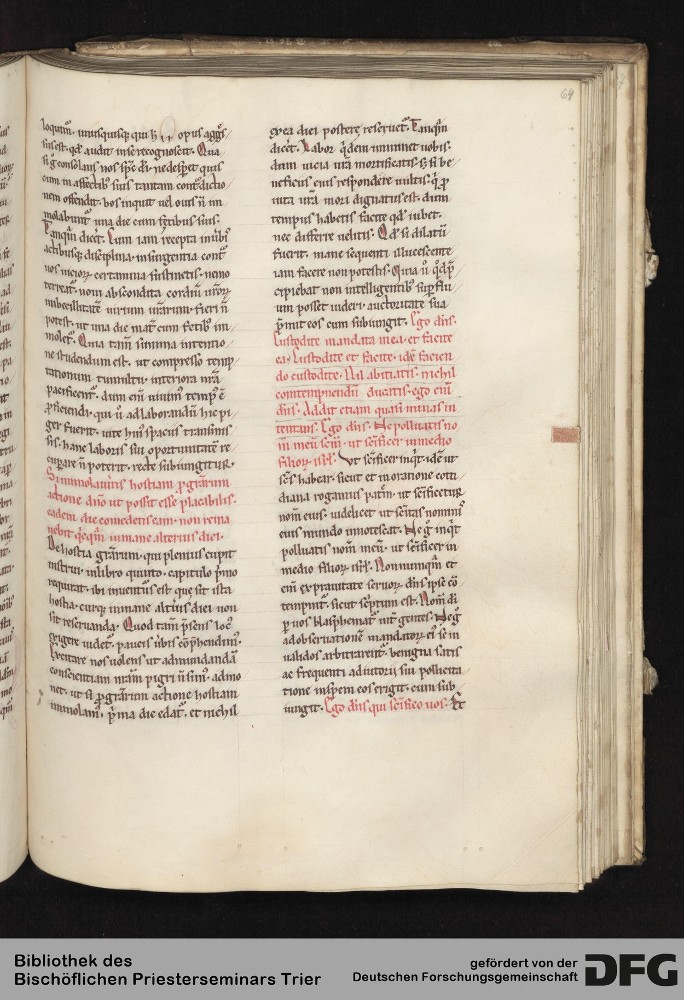 64
loquim̄. unusquisq; qui h̄ opus aggͥs/
sus est. qd̄ audit in se recognoscit. Qua
si g̊ consolans nos sp̄c dī. ne despet quis
cum in affectib; suis tantam contͣdictio/
nem offendit. bos inquit vel ouis ñ im
molabunt᷑ una die cum fetibus suis.
Tanqͣm diceret. Cum iam recepta in
actibusq; disciplina. insurgentia contͣ
vos vicioꝝ certamina sustinetis. nemo
terreat᷑. novi abscondita cordiū
imbecillitatē virium
potest. ut una die mat̄ cum fetib; im
molet᷑. Quia tam̄ summa intentio/
ne studendum est. ut compresso temp
tationum tumultu. interiora nr̄a
pacificent᷑. dum eni vivim᷑ temp᷑ ē
ꝓficiendi. qui ū ad laborandū hic pi/
ger fuerit. vite hui᷑ spacus transmis
sis. hanc laboris sui oportunitatē re
cuꝑare ñ poterit. recte subiungitur.
Si immolaveritis hostiam ꝓ grͣrum
actione dn̄o ut possit esse placabilis.
eadem die comedetis eam. non rema
nebit qͥcqͣm in mane alterius diei.
De hostia grͣrum. qui plenius cupit
instrui. in libro quinto. capitulo pͥmo
requirat. ibi inventū est que sit ista
hostia. cur q; in mane alt̄ius diei non
sit reservanda. Quod tam̄ p̄sens loc᷑
exigere videt᷑. paucis v̄bis cōp̄hendim᷑.
Excitare nos volens ut ad mundandā
conscientiam nr̄am pigri ñ sim᷑. admo
net. ut si ꝓ grͣrum actione hostiam
immolam᷑. pͥma die edat᷑. et nichil
ex ea diei postere reservet᷑. Tanqͣm
dicet. Labor qͥdem imminet vobis.
dum vicia vr̄a mortificatis. s; si be/
neficiis eius respondere vultis. qͥ ꝓ
vita vr̄a mori dignatus est. dum
tempus habetis facite qd̄ iubet.
nec differre velitis. Qd̄ si dilatū
fuerit. mane sequenti illucescente
iam facere non potestis. Quia ū qd̄ p̄
cipiebat non intelligentib; suꝑflu
um posset videri. auctoritate sua
p̄mit eos cum subiungit. Ego dn̄s.
Custodite mandata mea. et facite
ea. Custodite et facite. idē facien
do custodite. Nil abiciatis. nichil
contempnendū ducatis. ego enī
dn̄s. Addit etiam quasi minas in
tentans. Ego dn̄s. Ne polluatis no
m̄ meū sc̄m. ut sc̄ificer in medio
filioꝝ isrl̄. Ut sc̄ificer inqͥt. idē ut
sc̄s habear. sicut et in oratione coti
diana rogamus patrem. ut sc̄ificetur
nom̄ eius. videlicet ut sc̄itas nominis
eius mundo innotescat. Ne g̊ inqͥt
polluatis nom̄ meū. ut sc̄ificer in
medio filioꝝ isrl̄. Nonnunqͣm et
enī ex pravitate servoꝝ. dn̄s ipse cō
tempnit᷑. sicut sc̄ptum est. Nom̄ dī
ꝑ vos blasphemat᷑ int̄ gentes. Ne g̊
ad observationē mandatoꝝ ei᷑ se in
validos arbitrarent᷑. benigna satis
ac frequenti adiutorii sui pollicita
tione in spem eos erigit. cum sub
iungit. Ego dn̄s qui sc̄ifico vos. Et
Bibliothek des
Bischöflichen Priesterseminars Trier
gefördert von der
Deutschen Forschungsgemeinschaft
DFG